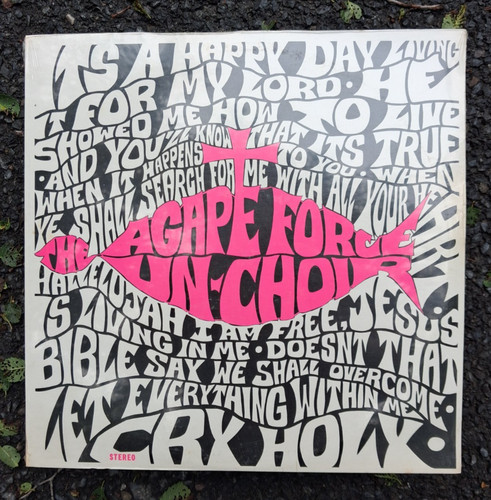 ITS A HAPPY DAY LIVING
IT FOR MY LORD · HE
SHOWED ME HOW TO LIVE
· AND YOU'LL KNOW THAT ITS TRUE
WHEN IT HAPPENS TO YOU · WHEN
YE SHALL SEARCH FOR ME WITH ALL YOUR HEART ·
THE AGAPE FORCE
UN-CHOIR
HALLELUJAH I AM FREE, JESUS
IS LIVING IN ME · DOESNT THAT
BIBLE SAY WE SHALL OVERCOME ·
LET EVERYTHING WITHIN ME
CRY HOLY ·
STEREO